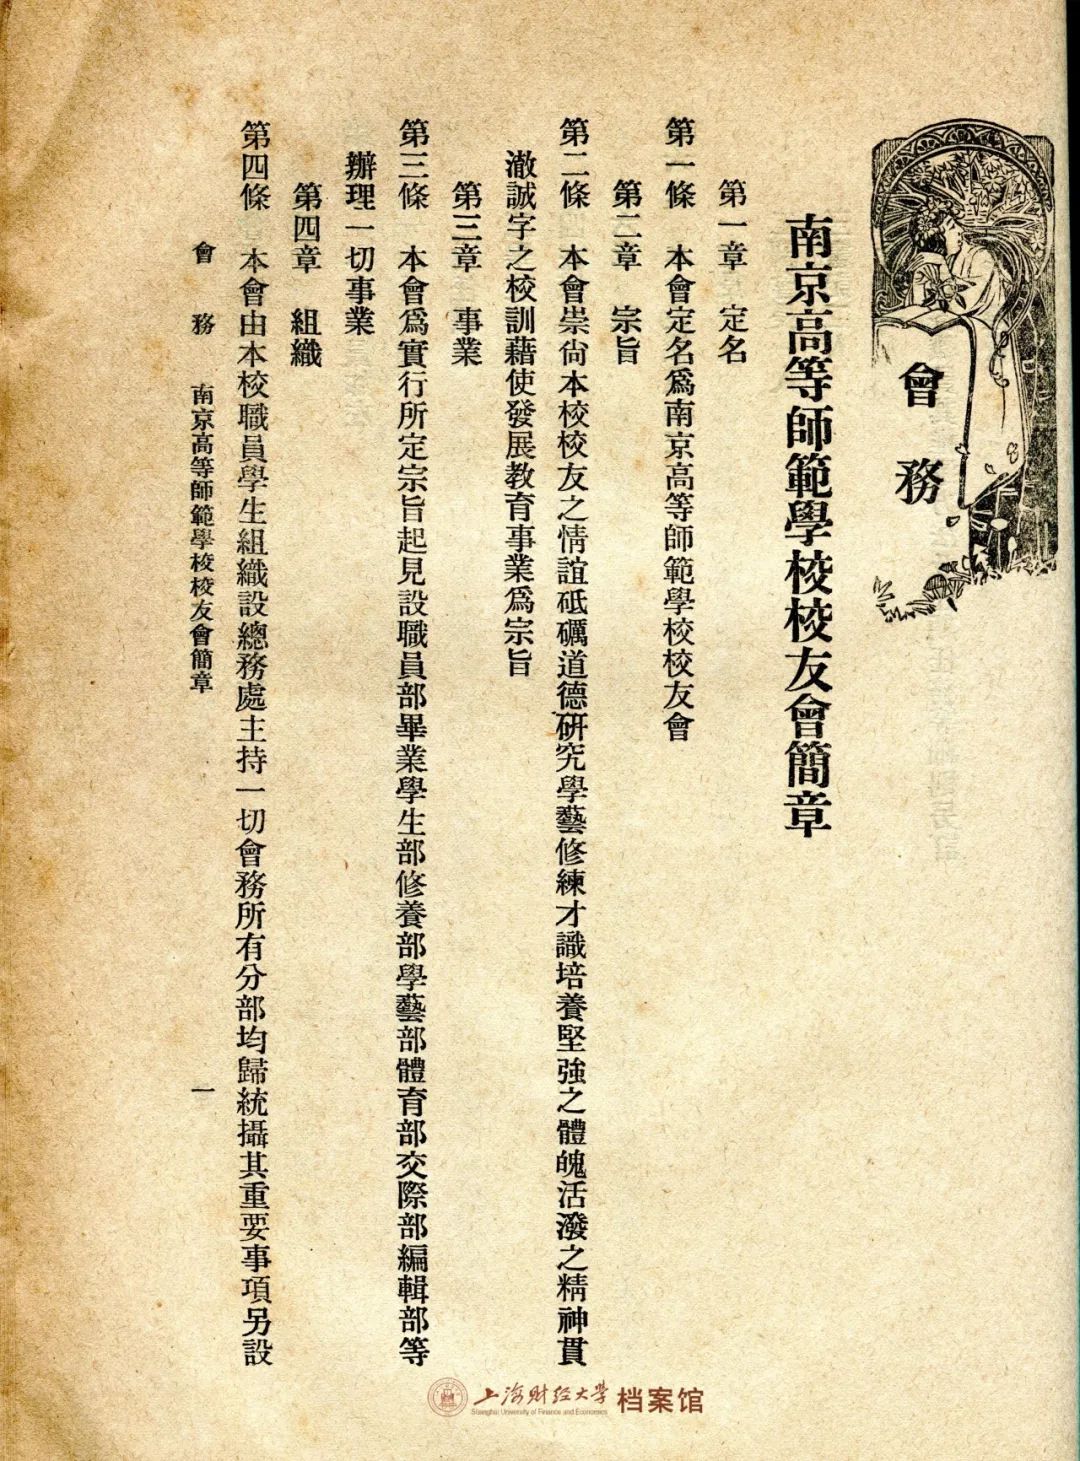 會務
南京高等師範學校校友會簡章
第一章　定名
第一條　本會定名爲南京高等師範學校校友會
第二章　宗旨
第二條　本會崇尙本校校友之情誼砥礪道德研究學藝修練才識培養堅強之體魄活潑之精神貫
澈誠字之校訓藉使發展教育事業爲宗旨
第三章　事業
第三條　本會爲實行所定宗旨起見設職員部畢業學生部修養部學藝部體育部交際部編輯部等
辦理一切事業
第四章　組織
第四條　本會由本校職員學生組織設總務處主持一切會務所有分部均歸統攝其重要事項另設
會務　南京高等師範學校校友會簡章　一
上海财经大学 档案馆
Shanghai University of Finance and Economics